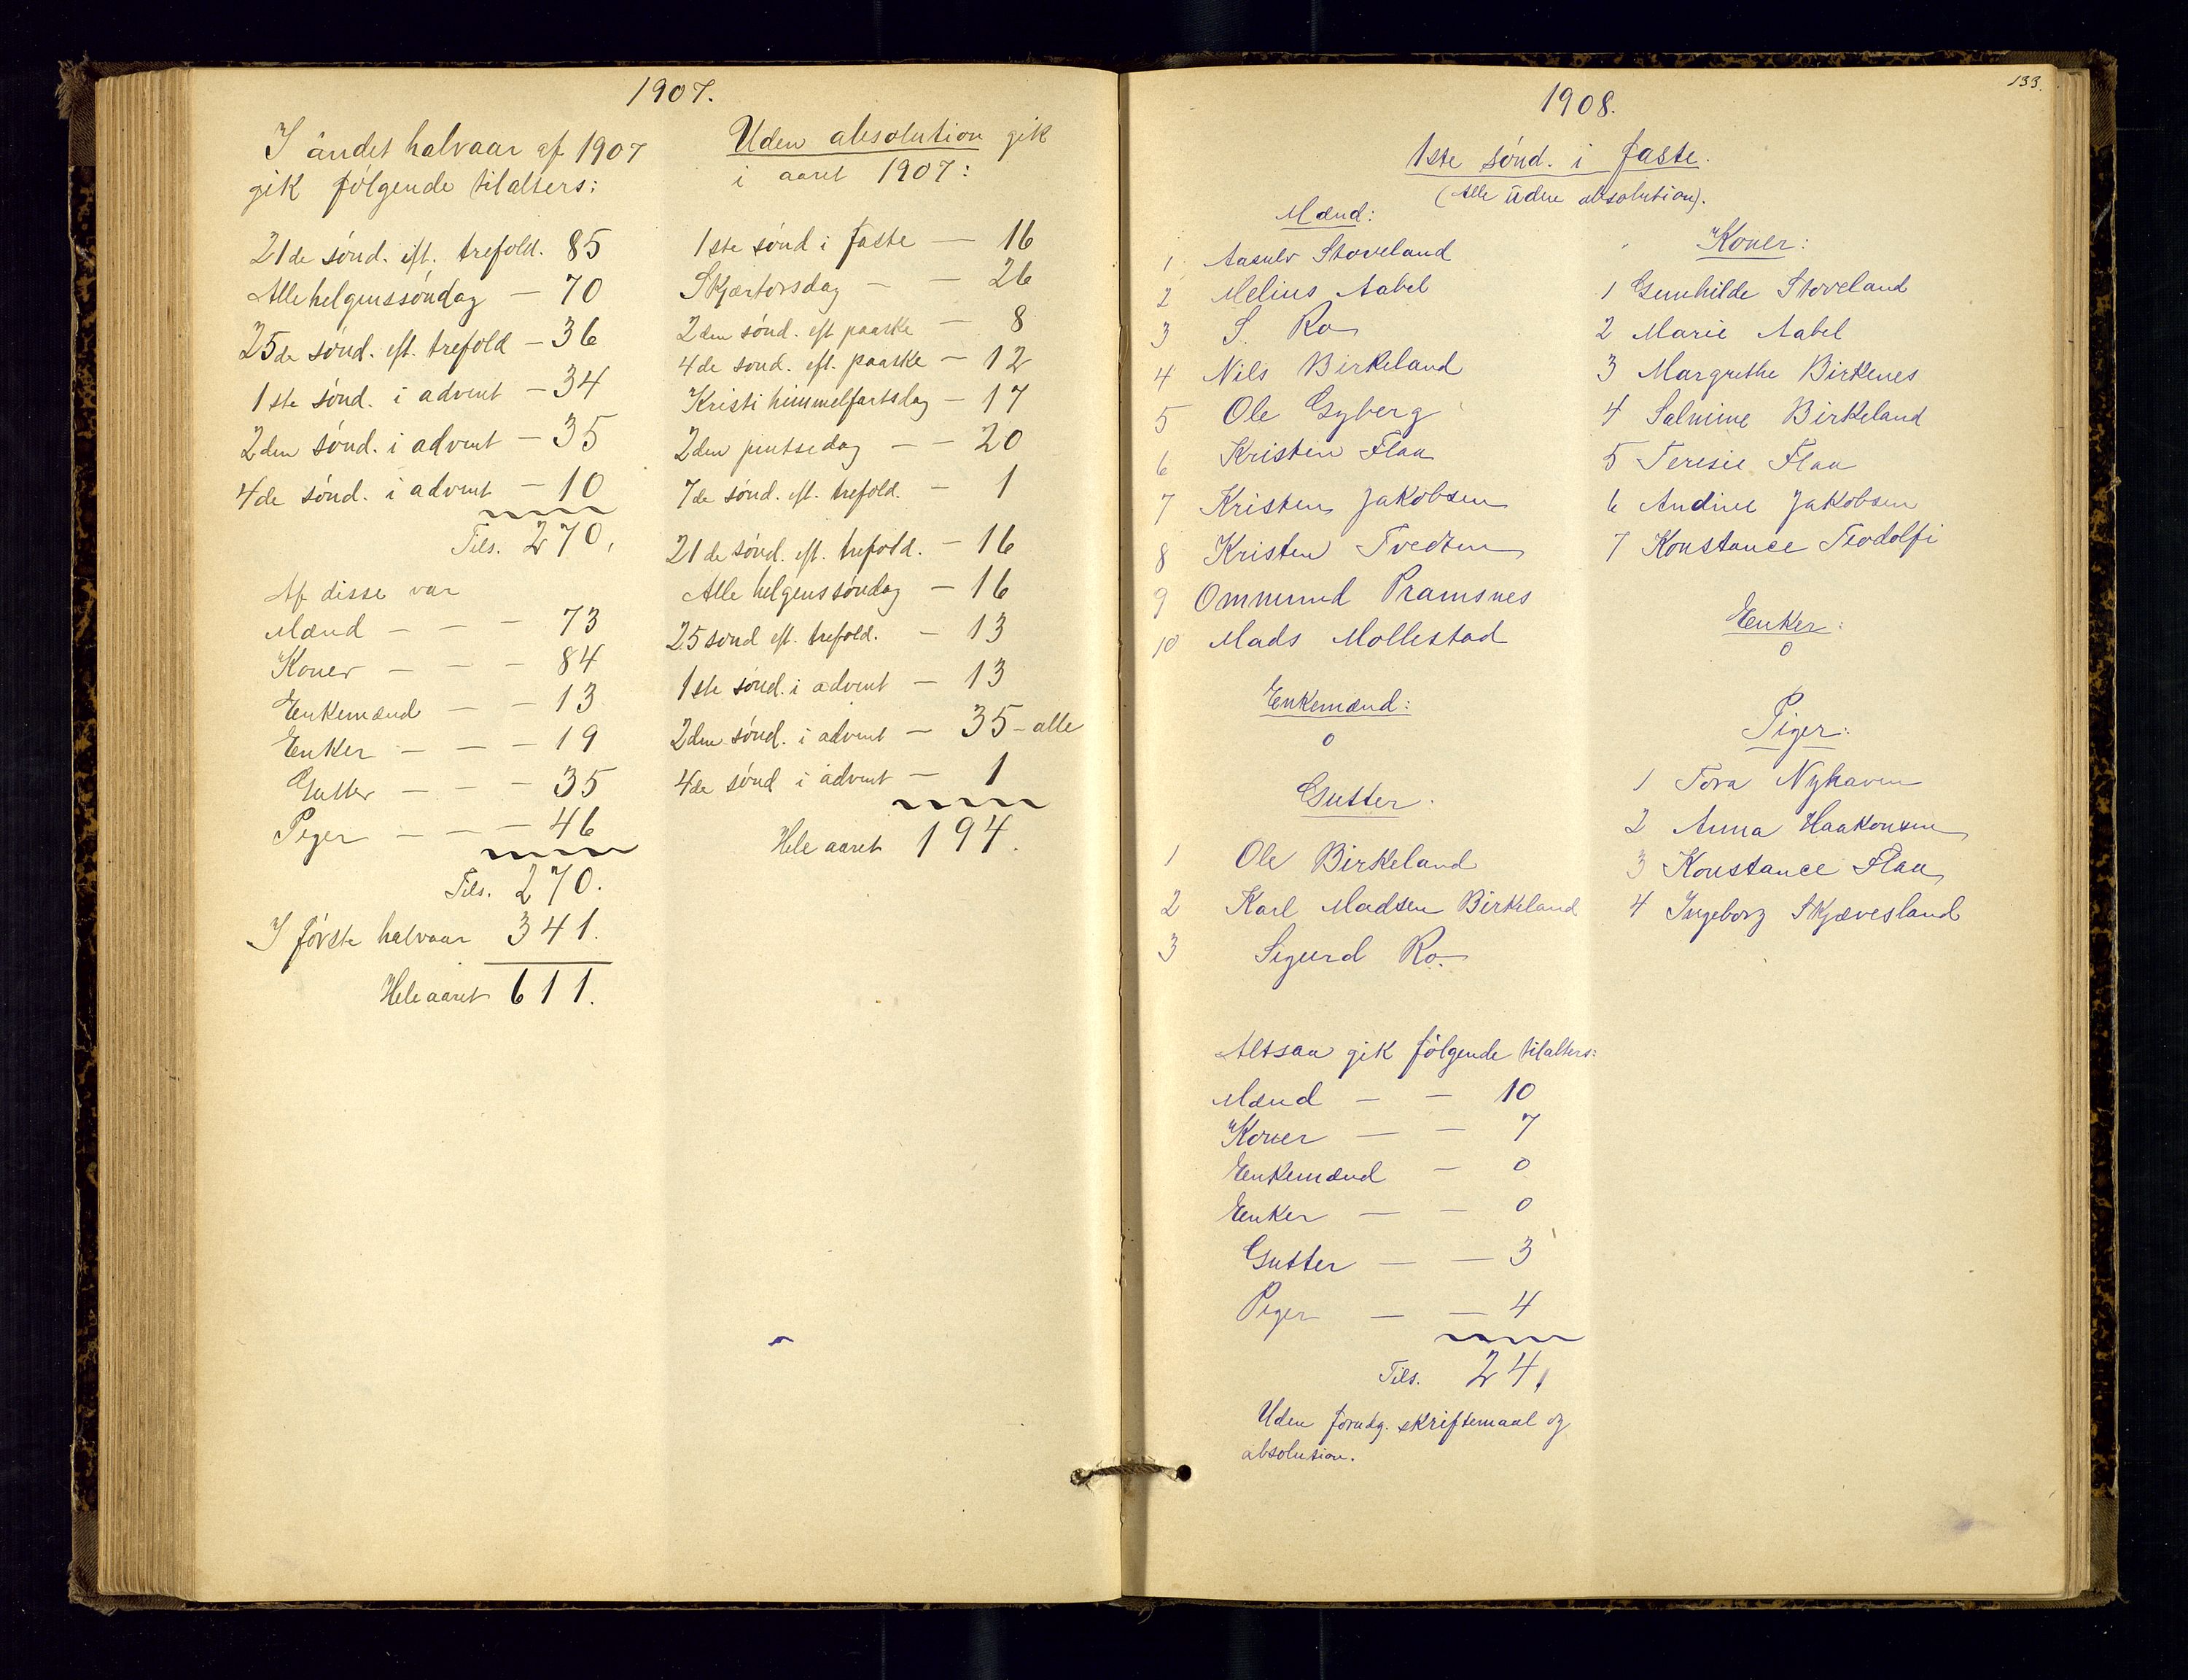 1907.
I andet halvaar af 1907
gik følgende tilalters:
21de sønd. eft. trefold. 85
Allehelgenssøndag — 70
25de sønd. eft. trefold — 36
1ste sønd. i advent — 34
2den sønd. i advent — 35
4de sønd. i advent — 10
Tils. 270.
Af disse var
Mænd — — — 73
Koner — — — 84
Enkemænd — — 13
Enker — — — 19
Gutter — — — 35
Piger — — — 46
Tils. 270.
I første halvaar 341.
Hele aaret 611.
Uden absolution gik
i aaret 1907:
1ste sønd i faste — 16
Skjærtorsdag — — 26
2den sønd. eft paaske — 8
4de sønd. eft. paaske — 12
Kristi himmelfartsdag — 17
2den pintsedag — — 20
7de sønd. eft. trefold. — 1
21de sønd. eft. trefold. — 16
Alle helgenssøndag — 16
25 sønd eft. trefold. — 13
1ste sønd. i advent — 13
2den sønd. i advent — 35 - alle
4de sønd i advent — 1
Hele aaret 194.
133.
1908.
1ste sønd. i faste.
(Alle uden absolution).
Mænd:
1 Aasulv Stoveland
2 Melius Aabel
3 S. Ro
4 Nils Birkeland
5 Ole Gyberg
6 Kristen Flaa
7 Kristen Jakobsen
8 Kristen Tvedten
9 Ommund Pramsnes
10 Mads Mollestad
Enkemænd:
0
Gutter:
1 Ole Birkeland
2 Karl Madsen Birkeland
3 Sigurd Ro.
Koner:
1 Gunhilde Stoveland
2 Marie Aabel
3 Margrethe Birkenes
4 Salmine Birkeland
5 Teresie Flaa
6 Andine Jakobsen
7 Konstance Teodolfi
Enker:
0
Piger:
1 Tora Nyhaven
2 Anna Haakonsen
3 Konstance Flaa
4 Ingeborg Skjævesland
Altsaa gik følgende tilalters:
Mænd — — 10
Koner — — 7
Enkemænd — 0
Enker — — 0
Gutter — — 3
Piger — — 4
Tils. 24.
Uden forudg. skriftemaal og
absolution.